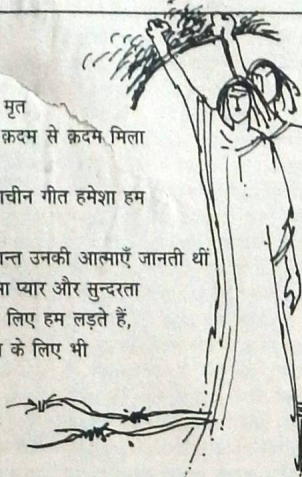 मृत
क़दम से क़दम मिला
चीन गीत हमेशा हम
उनकी आत्माएँ जानती थीं
प्यार और सुन्दरता
लिए हम लड़ते हैं,
के लिए भी